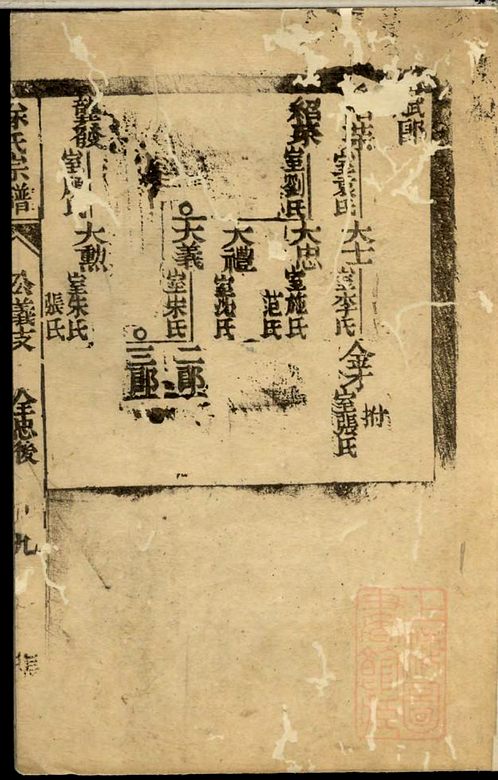 武郎
室袁氏
大士
室李氏
全才
室張氏
附
紹球
室劉氏
大忠
室施氏
范氏
大禮
室沈氏
大義
室朱氏
二郎
三郎
室周氏
大勲
室朱氏
張氏
徐氏宗譜
公義支
全忠後
九